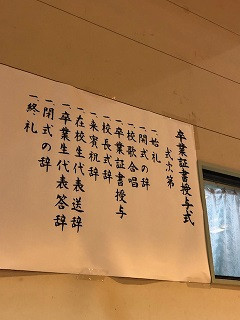 卒業証書授与式
式次第
一始礼
一開式の辞
一校歌合唱
一卒業証書授与
一校長式辞
一来賓祝辞
一在校生代表送辞
一卒業生代表答辞
一閉式の辞
一終礼